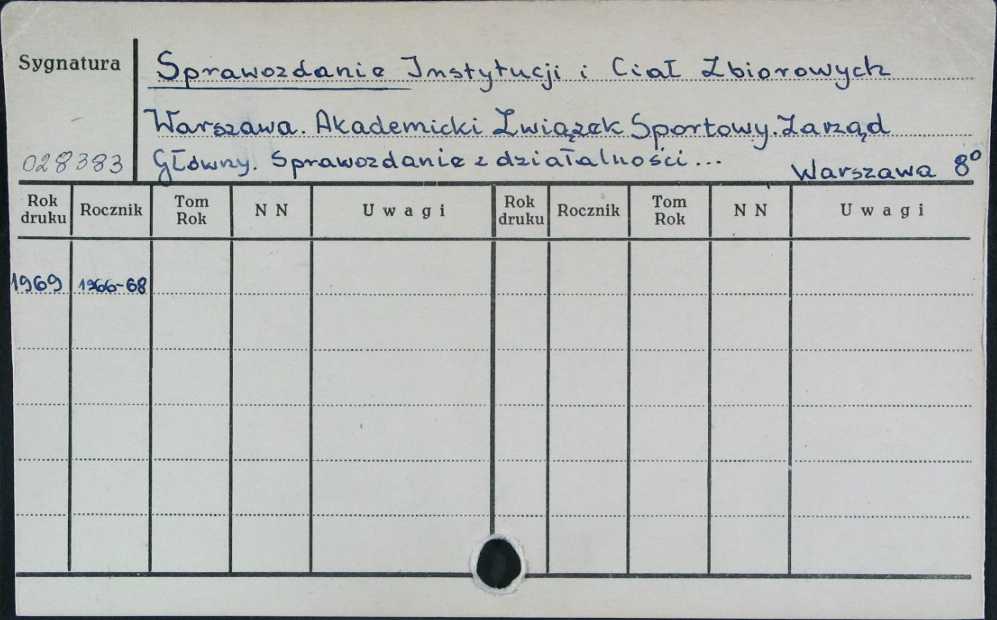 Sygnatura
Sprawozdanie Instytucji i Ciał Zbiorowych
Warszawa. Akademicki Związek Sportowy. Zarząd
028383 Główny. Sprawozdanie z działalności...
Warszawa 8°
Rok druku Rocznik Tom Rok N N Uwagi Rok druku Rocznik Tom Rok N N Uwagi
1969 1966-68